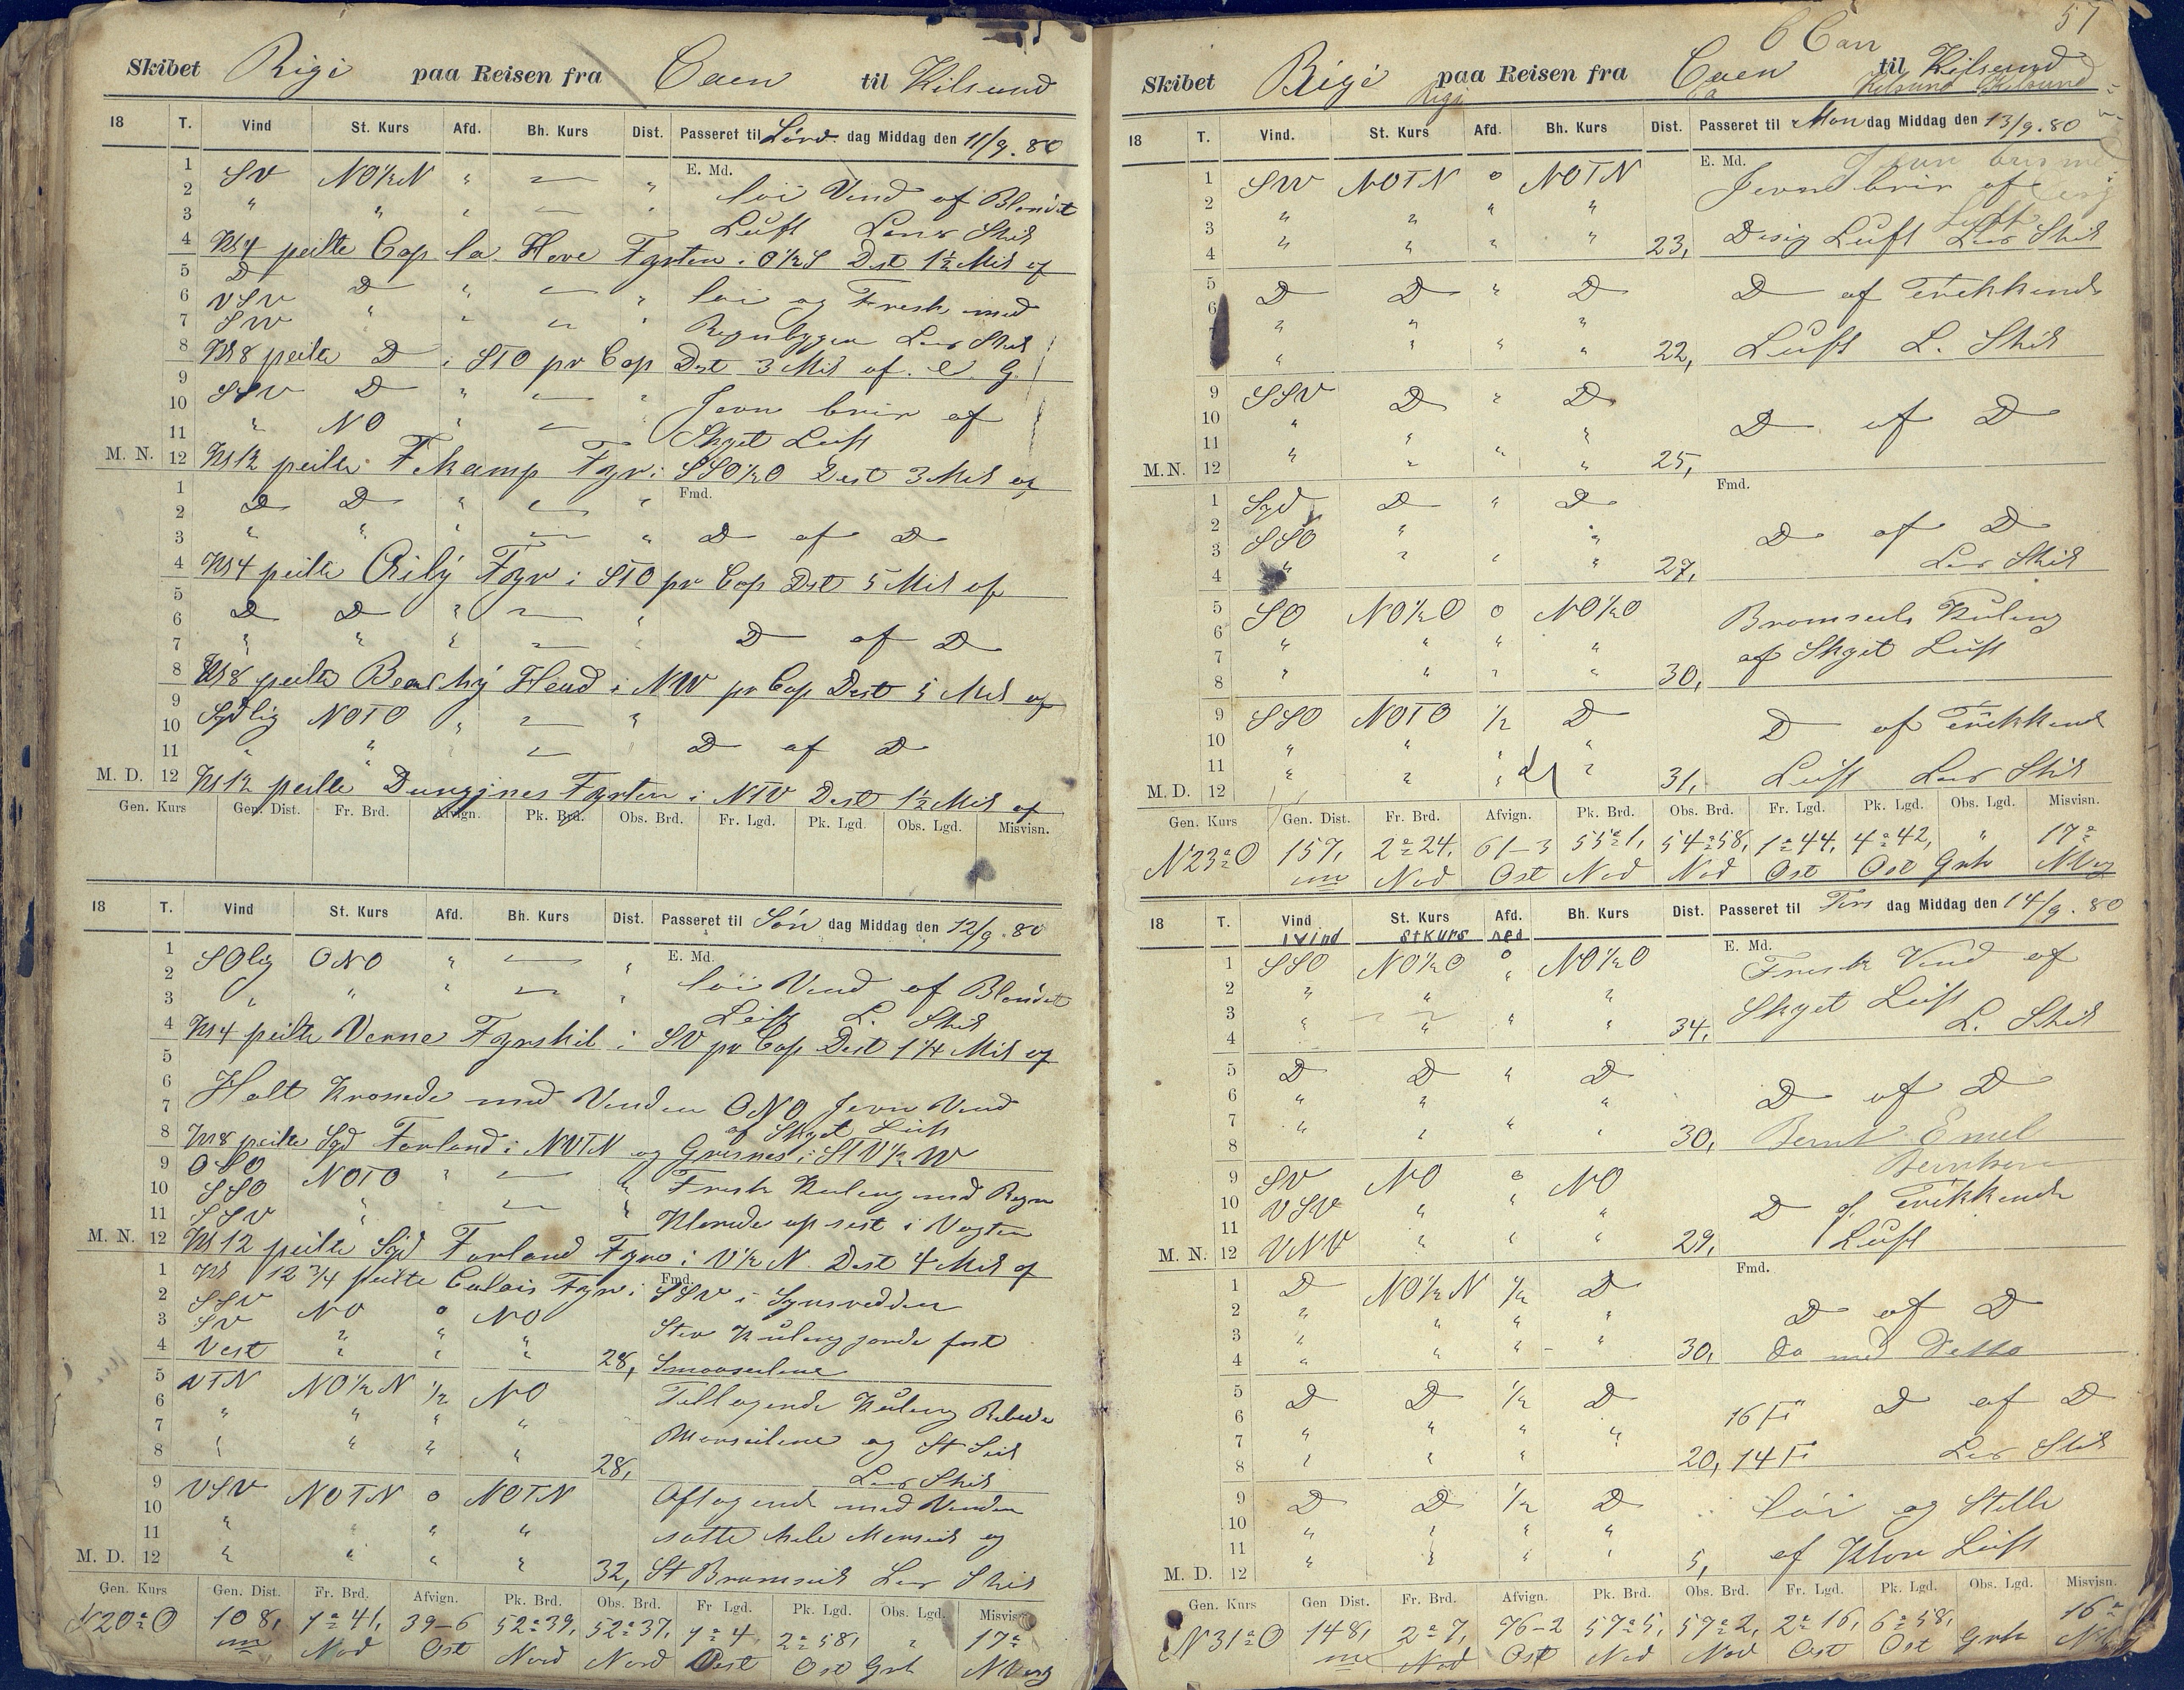 Skibet Rigi paa Reisen fra Caen til Kilsund
18 T. Vind St. Kurs Afd. Bh. Kurs Dist. Passeret til Lörd. dag Middag den 11/9. 80
1 SV NO½N " — " E. Md.
2 löi Vind af Blandet
3 " " " — " Luft Lens Skib
4 Kl 4 peilte Cap la Heve Fyrten i O½S Dist 1½ Mil af
5 D D " — " löi og Frisk med
6 VSV " " — "
7 SW Regnbyger Lens Skib
8 Kl 8 peilte D i STO pr Cop Dist 3 Mil af. e. G.
9 SSV D " — " Jevn bris af
10 " NO " — Skyet Luft
11
M. N. 12 Kl 12 peilte Fekamp Fyr i SSO½O Dist 3 Mil af
1 D D " — " Fmd.
2
3 " " " — " D af D
4 Kl 4 peilte Ailÿ Fyr i STO pr Cop Dist 5 Mil af
5
6 D D " — "
7 " " " — " D af D
8 Kl 8 peilte Beachÿ Head i NW pr Cop Dist 5 Mil af
9 Sydlig NOTO " — "
10
11 " " " — D af D
M. D. 12 Kl 12 peilte Dungines Fyrten i NTV Dist 1½ Mil af
Gen. Kurs Gen. Dist. Fr. Brd. Afvign. Pk. Brd. Obs. Brd. Fr. Lgd. Pk. Lgd. Obs. Lgd. Misvisn.
18 T. Vind St. Kurs Afd. Bh. Kurs Dist. Passeret til Sön dag Middag den 12/9. 80
1 SOlig ONO " — " E. Md.
2 löi Vind af Blandet
3 " " " — " Luft L. Skib
4 Kl 4 peilte Verne Fyrskib i SV pr Cop Dist 1¼ Mil af
5
6 Holt Krossede med Vinden ONO Jevn Vind
7 af Skyet Luft
8 Kl 8 peilte Syd Forland i NVTN og Grisnes i STV½W
9 OSO NOTO " — " Frisk Kuling med Regn
10 SSO
11 SSV " " — " Klarede op sist i Vagten
M. N. 12 Kl 12 peilte Syd Forland Fyr i V½N. Dist 4 Mil af
1 Kl 12 ¾ peilte Calais Fyr i Fmd. SSV i Synsredden
2 SSV NO o NO
3 SV " " " Stiv Kuling fast
4 Vest " " " 28, Smaaseilene
5 VTN NO½N ½ NO Tiltagende Kuling
6 " " " "
7 Merseilene og St Seil
8 " " " " 28, Lens Skib
9 VSV NOTN o NOTN Aftagende med Vinden
10 " " " " satte hele Merseil og
11
M. D. 12 " " " " 32, St Bramseil Lens Skib
Gen. Kurs Gen. Dist. Fr. Brd. Afvign. Pk. Brd. Obs. Brd. Fr Lgd. Pk. Lgd. Obs. Lgd. Misvisn
N20°O 108, 1°41, 39-6 52°39, 52°37, 1°4 2°58, " 17°
Nod Ost Nord Nord Ost Grh
51
C Can
Skibet Rigi paa Reisen fra Caen til Kilsund
Rigi Ca Kilsund Kilsund
18 T. Vind. St. Kurs Afd. Bh. Kurs Dist. Passeret til Man dag Middag den 13/9. 80
1 SW NOTN o NOTN E. Md. Jevn bris af
2 " " " "
3
4 " " " " 23, Disig Luft Lens Skib
5 D D " D D af Trükkende
6 " " "
7
8 " " " " 22, Luft L. Skib
9 SSV D " D
10 " D af D
11 " "
M.N. 12 " " " " 25,
1 Syd D " D Fmd.
2 SSO " " D af D
3 " " " 27, Lens Skib
4 "
5 SO NO½O o NO½O Bramseils Kuling
6 " " " "
7 af Skyet Luft
8 " " " " 30,
9 SSO NOTO ½ D D af Trükkend
10 " " " "
11
M. D. 12 " " " " 31, Luft Lens Skib
Gen. Kurs Gen. Dist. Fr. Brd. Afvign. Pk. Brd. Obs. Brd. Fr. Lgd. Pk. Lgd. Obs. Lgd. Misvisn.
N23°O 157, 2°24, 61-3 55°1, 54°58, 1°44, 4°42, " 17°
Nod Ost Nod Nod Ost Ost Grh
18 T. Vind St. Kurs Afd. Bh. Kurs Dist. Passeret til Tirs dag Middag den 14/9. 80
vind St Kurs
1 SSO NO½O o NO½O E. Md. Frisk Vind af
2 " " " "
3 Skyet Luft
4 " " " " 34, L. Skib
5 D D " D
6 " " " D af D
7
8 " " " " 30, Bernt Emel
Berntsen
9 SV NO o NO
10 VSV " " " D af Trükkende
11 Luft
M. N. 12 VNV " " " 29,
1 D NO½N ½ D Fmd.
2 " " " " D af D
3
4 " " " " 30, do med Detto
5 D D ½ D
6 " " " " 16 F D af D
7
8 " " " " 20, 14 F Lens Skib
9 D D ½ D löi og Stille
10 " " " "
11
M. D. 12 " " " " 5, af Klar Luft
Gen. Kurs Gen Dist. Fr. Brd. Afvign. Pk. Brd. Obs. Brd. Fr. Lgd. Pk. Lgd. Obs. Lgd. Misvisn.
N31°O 148, 2°7, 76-2 57°5, 57°2, 2°16, 6°58, 16°
Nod Ost Nod Nod Ost Ost Grh